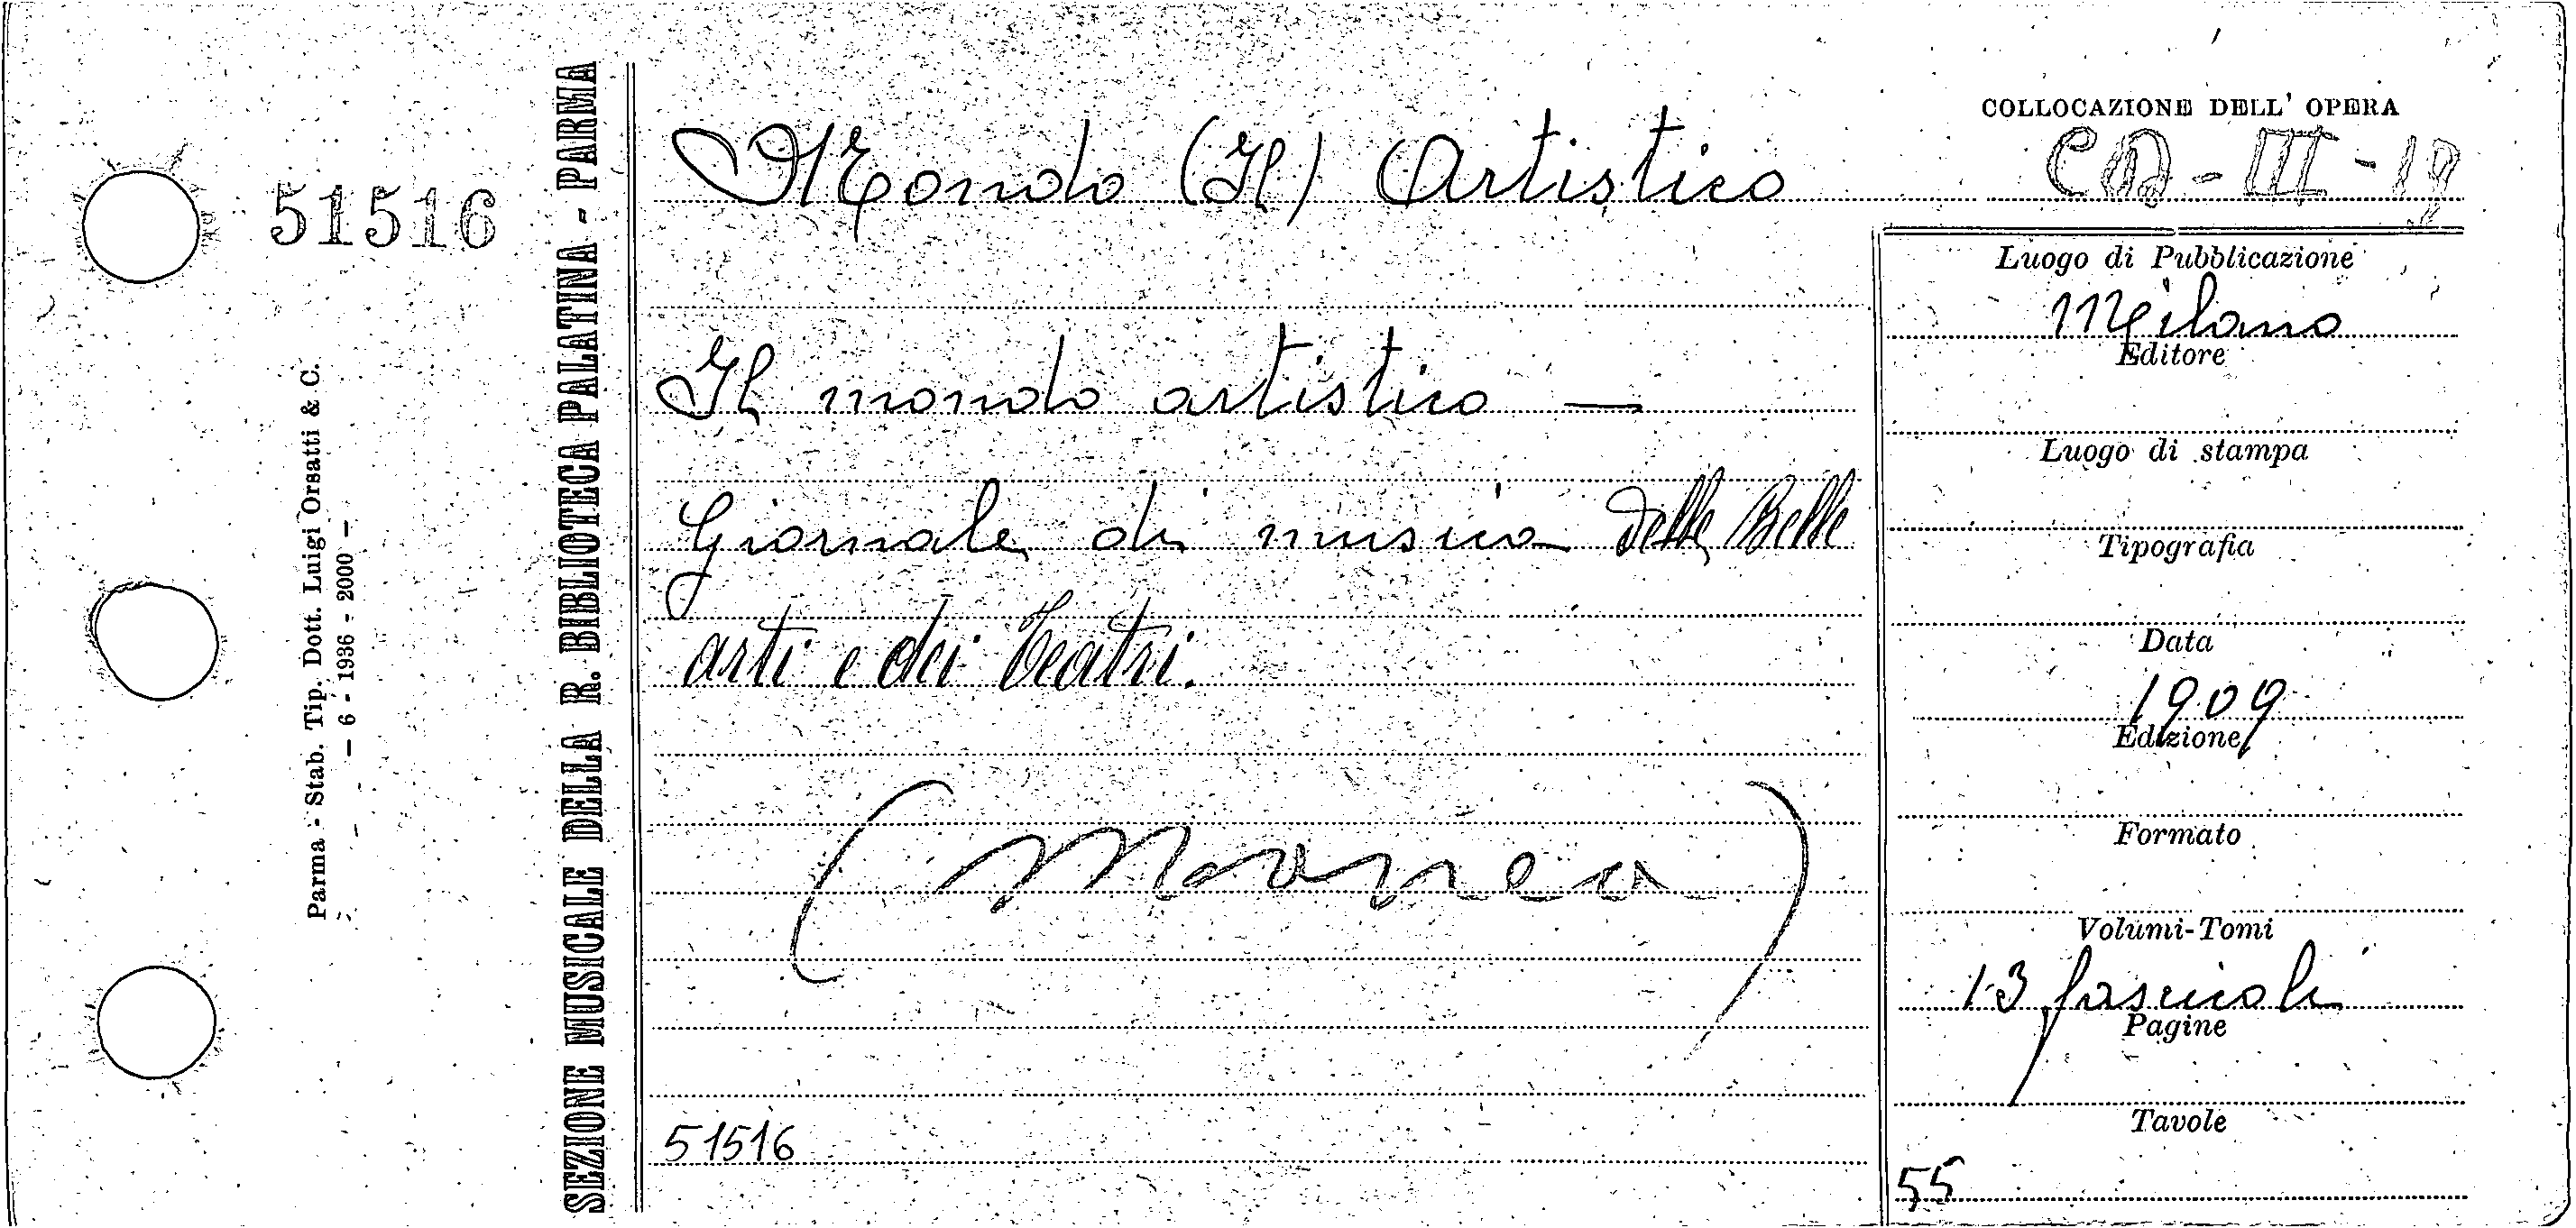 51516
Parma - Stab. Tip. Dott. Luigi Orsatti & C.
— 6 - 1936 - 2000 —
SEZIONE MUSICALE DELLA R. BIBLIOTECA PALATINA - PARMA
Mondo (Il) Artistico
Il mondo artistico —
Giornale di musica delle Belle
arti e dei teatri.
(manca)
51516
COLLOCAZIONE DELL' OPERA
CB-III-19
Luogo di Pubblicazione
Milano
Editore
Luogo di stampa
Tipografia
Data
1909
Edizione
Formato
Volumi-Tomi
13 fascicoli
Pagine
Tavole
55